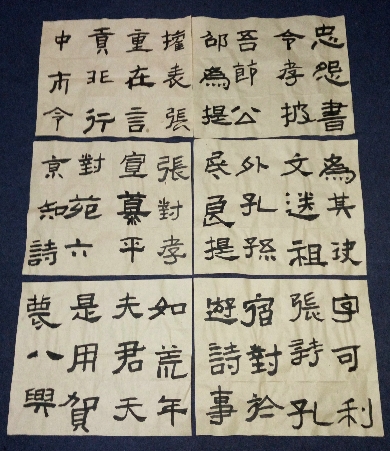 忠怨書
令孝披
吾節公
邵為提
表張
重在言
貢北行
中市令
為其
文送祖
外孔孫
良提
張對孝
宣慕平
對苑六
京知詩
字可利
張詩孔
宿對於
遊詩事
如荒年
夫君天
是用賀
農八興